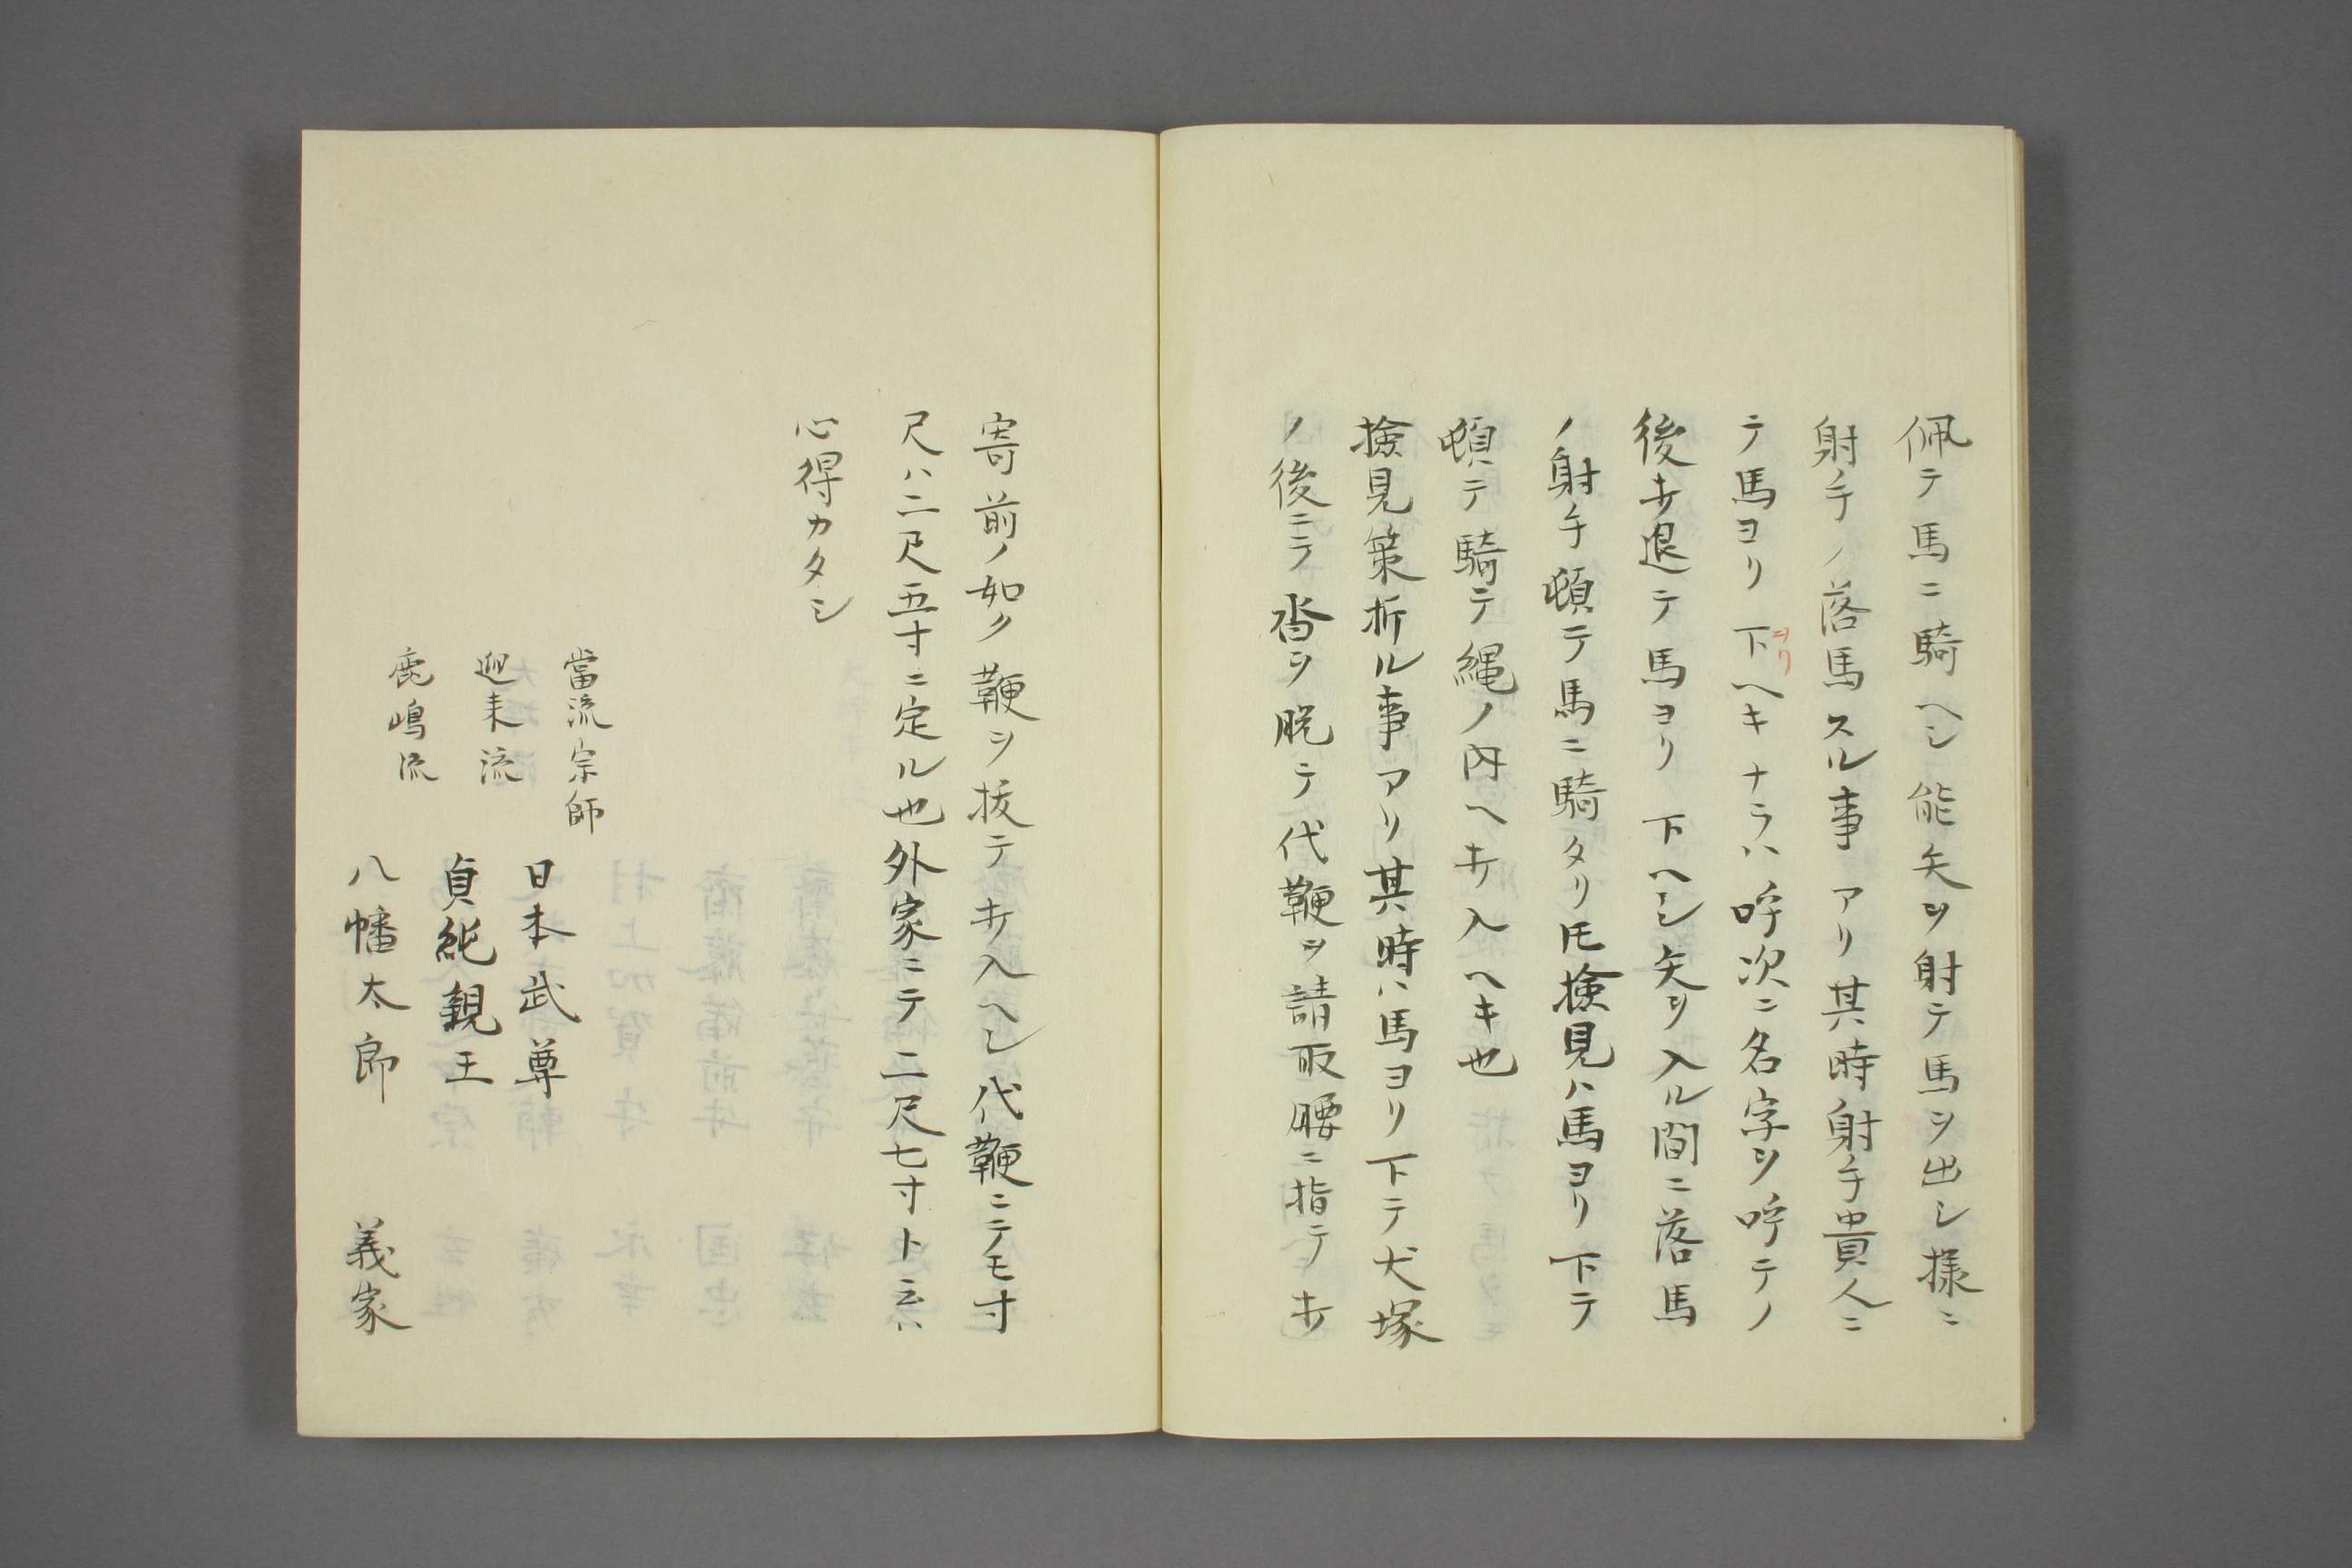 佩テ馬ニ騎ヘシ能矢ヲ射テ馬ヲ出シ様ニ
射手ノ落馬スル事アリ其時射手貴人ニ
テ馬ヨリ下ヘキナラハ呼次ニ名字ヲ呼テノ
ヲリ
後ホ退テ馬ヨリ下ヘシ矢ヲ入ル間ニ落馬
ノ射手頓テ馬ニ騎タリ𪜈検見ハ馬ヨリ下テ
頓テ騎テ縄ノ内ヘホ入ヘキ也
検見策折ル事アリ其時ハ馬ヨリ下テ犬塚
ノ後ニテ沓ヲ脱テ代鞭ヲ請取腰ニ指テホ
寄前ノ如ク鞭ヲ抜テホ入ヘシ代鞭ニテモ寸
尺ハ二尺五寸ニ定ル也外家ニテ二尺七寸ト云ハ
心得カタシ
當流宗師
日本武尊
迎来流
貞純親王
鹿嶋流
八幡太郎 義家